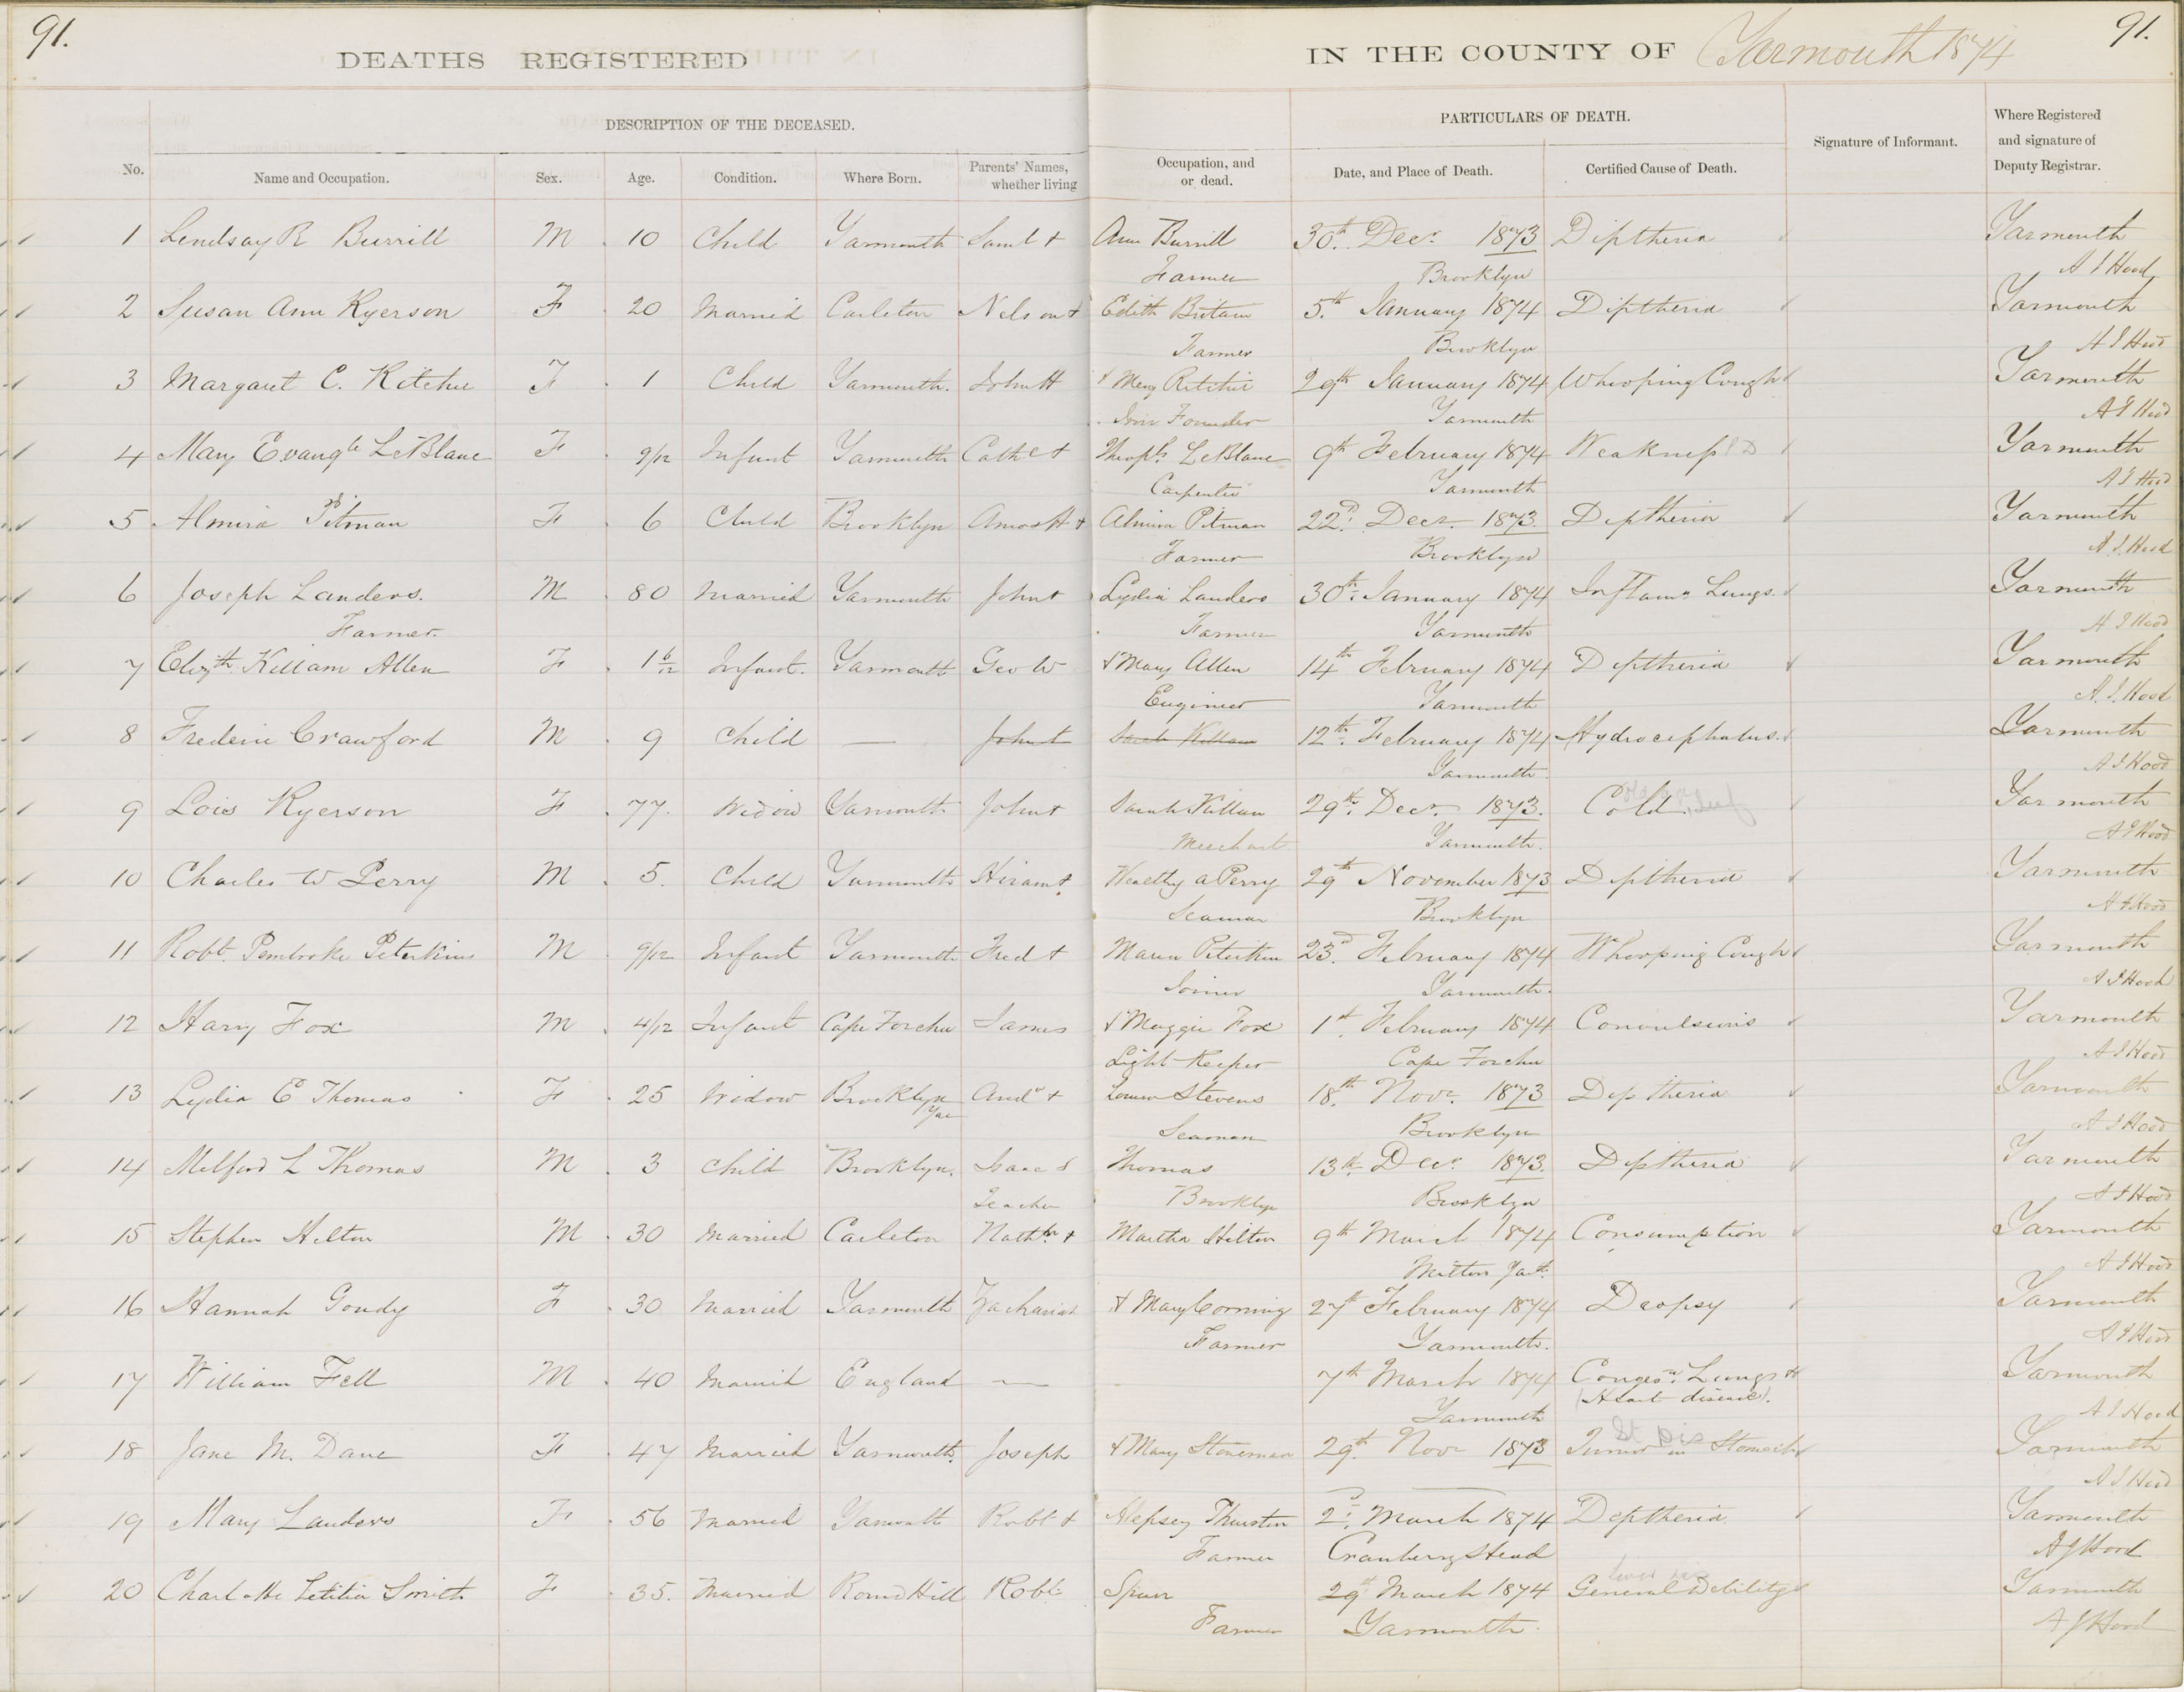 91.
DEATHS REGISTERED IN THE COUNTY OF Yarmouth 1874
91.
DESCRIPTION OF THE DECEASED.
PARTICULARS OF DEATH.
Signature of Informant.
Where Registered
and signature of
Deputy Registrar.
No. Name and Occupation. Sex. Age. Condition. Where Born. Parents' Names,
whether living
Occupation, and
or dead.
Date, and Place of Death. Certified Cause of Death.
1 Lendsay R Burrill M 10 Child Yarmouth Saml + Ann Burrill 30th Decr. 1873 Diptheria Yarmouth
Farmer Brooklyn A J Hood
2 Susan Ann Ryerson F 20 Married Carleton Nelson + Edith 5th January 1874 Diptheria Yarmouth
Farmer Brooklyn A J Hood
3 Margaret C. Ritchie F 1 Child Yarmouth. John H + Mary Ritchie 29th January 1874 Whooping Cough Yarmouth
Iron Founder Yarmouth A J Hood
4 Mary Evangle LeBlanc F 9/12 Infant Yarmouth Cathe + Theophs LeBlanc 9th February 1874 Weakness Yarmouth
Carpenter Yarmouth A J Hood
5 Almira Pitman F 6 Child Brooklyn Amos H + Almira Pitman 22d. Decr. 1873. Diptheria Yarmouth
Farmer Brooklyn A. J. Hood
6 Joseph Landers. M 80 Married Yarmouth John + Lydia Landers 30th January 1874 Inflamn Lungs. Yarmouth
Farmer. Farmer Yarmouth A J Hood
7 Elizth Killam Allen F 1 6/12 Infant. Yarmouth Geo W + Mary Allen 14th February 1874 Diptheria Yarmouth
Engineer Yarmouth A. J. Hood
8 Frederic Crawford M 9 Child — John + Sarah Killam 12th February 1874 Hydrocephalus. Yarmouth
Yarmouth. A J Hood
9 Lois Ryerson F 77. Widow Yarmouth John + Sarah Killam 29th. Decr. 1873. Cold Yarmouth
Merchant Yarmouth. A J Hood
10 Charles W Perry M 5. Child Yarmouth Hiram + Wealthy A Perry 29th November 1873 Diptheria Yarmouth
Seaman Brooklyn A J Hood
11 Robt. Pembroke Peterkins M 9/12 Infant Yarmouth Fred + Maria Peterkin 23d. February 1874 Whooping Cough Yarmouth
Joiner Yarmouth. A J Hood
12 Harry Fox M 4/12 Infant Cape Forchu James + Maggie Fox 1st February 1874 Convulsions Yarmouth
Light Keeper Cape Forchu A J Hood
13 Lydia E Thomas F 25 Widow Brooklyn Andw + Louisa Stevens 18th. Novr. 1873 Diptheria Yarmouth
Yar Seaman Brooklyn A J Hood
14 Milford L Thomas M 3 Child Brooklyn. Isaac S Thomas 13th Decr 1873. Diptheria Yarmouth
Teacher Brooklyn Brooklyn A J Hood
15 Stephen Hilton M 30 Married Carleton Nathn. + Martha Hilton 9th March 1874 Consumption Yarmouth
Milton Yarth. A J Hood
16 Hannah Goudy F 30 Married Yarmouth Zachariah + Mary Corning 27th February 1874 Dropsy Yarmouth
Farmer Yarmouth. A J Hood
17 William Fell M 40 Married England — 7th March 1874 Congesn. Lungs & Yarmouth
(Heart disease).
Yarmouth A J Hood
18 Jane M. Dane F 47 Married Yarmouth. Joseph + Mary Stoneman 29th. Novr 1873 Tumor in Stomach Yarmouth
St Dis
A J Hood
19 Mary Landers F 56 Married Yarmouth Robt + Hepsey Thurston 2d. March 1874 Deptheria Yarmouth
Farmer Cranberry Head A J Hood
20 Charlotte Letitia Smith F 35. Married Round Hill Robt. Spurr 29th March 1874 General Debility Yarmouth
Farmer Yarmouth. A J Hood